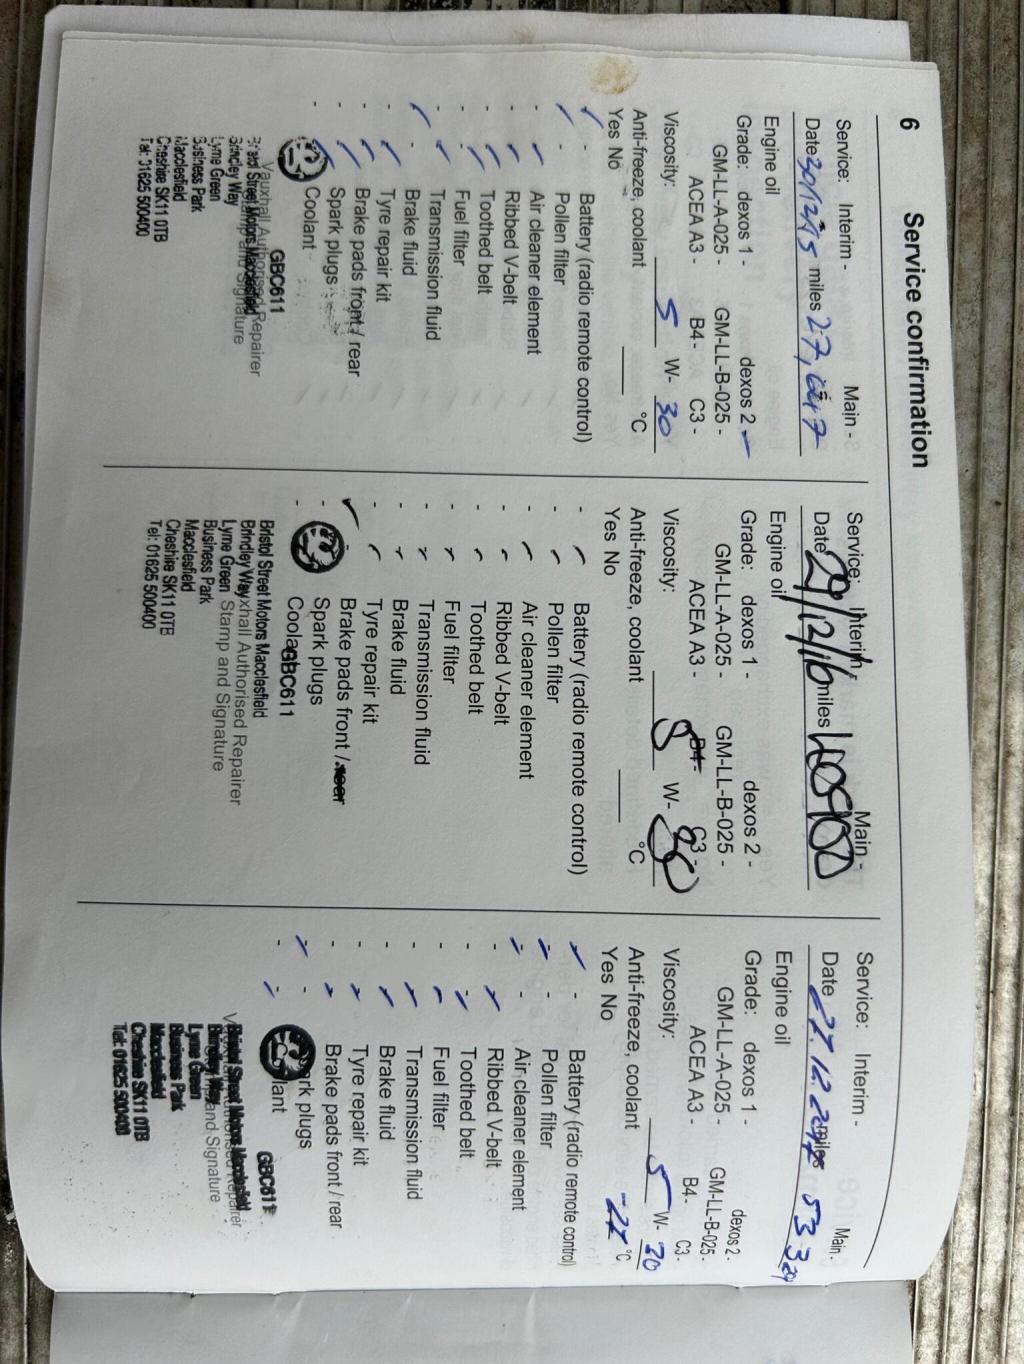 6
Service confirmation
Service: Interim - Main -
Date 30/12/15 miles 27,647
Engine oil
Grade: dexos 1 - dexos 2 -
GM-LL-A-025 - GM-LL-B-025 -
ACEA A3 - B4 - C3 -
Viscosity: 5 W- 30
Anti-freeze, coolant °C
Yes No
- Battery (radio remote control)
- Pollen filter
- Air cleaner element
- Ribbed V-belt
- Toothed belt
- Fuel filter
- Transmission fluid
- Brake fluid
- Tyre repair kit
- Brake pads front / rear
- Spark plugs
- Coolant
GBC611
Vauxhall Authorised Repairer
Stamp and Signature
Bristol Street Motors Macclesfield
Brindley Way
Lyme Green
Business Park
Macclesfield
Cheshire SK11 0TB
Tel: 01625 500400
Service: Interim Main -
Date 29/12/16 miles
Engine oil
Grade: dexos 1 - dexos 2 -
GM-LL-A-025 - GM-LL-B-025 -
ACEA A3 - B4 - C3 -
Viscosity: W-
Anti-freeze, coolant °C
Yes No
- Battery (radio remote control)
- Pollen filter
- Air cleaner element
- Ribbed V-belt
- Toothed belt
- Fuel filter
- Transmission fluid
- Brake fluid
- Tyre repair kit
- Brake pads front / rear
- Spark plugs
- Coolant
GBC611
Vauxhall Authorised Repairer
Stamp and Signature
Bristol Street Motors Macclesfield
Brindley Way
Lyme Green
Business Park
Macclesfield
Cheshire SK11 0TB
Tel: 01625 500400
Service: Interim - Main -
Date 27.12.2017 miles 53 329
Engine oil
Grade: dexos 1 - dexos 2 -
GM-LL-A-025 - GM-LL-B-025 -
ACEA A3 - B4 - C3 -
Viscosity: 5 W- 30
Anti-freeze, coolant -27 °C
Yes No
- - Battery (radio remote control)
- - Pollen filter
- - Air cleaner element
- Ribbed V-belt
- Toothed belt
- Fuel filter
- Transmission fluid
- Brake fluid
- Tyre repair kit
- Brake pads front / rear
- - rk plugs
- lant
GBC611
Vauxhall Authorised Repairer
Stamp and Signature
Bristol Street Motors Macclesfield
Brindley Way
Lyme Green
Business Park
Macclesfield
Cheshire SK11 0TB
Tel: 01625 500400